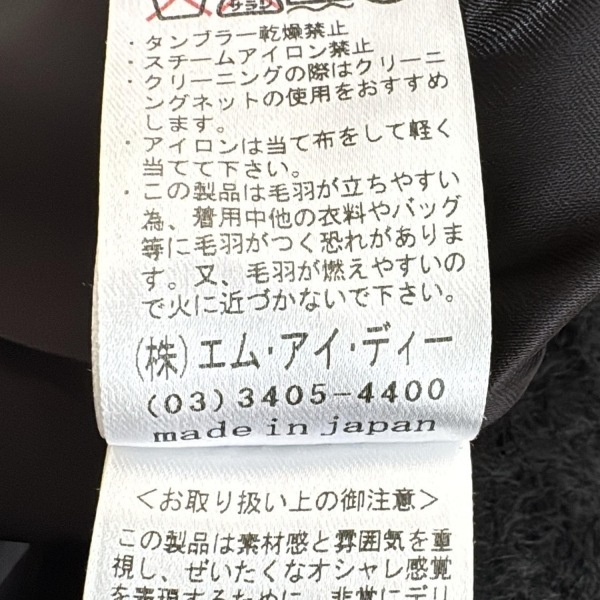 ・タンブラー乾燥禁止
・スチームアイロン禁止
・クリーニングの際はクリーニ
ングネットの使用をおすすめ
します。
・アイロンは当て布をして軽く
当てて下さい。
・この製品は毛羽が立ちやすい
為、着用中他の衣料やバッグ
等に毛羽がつく恐れがありま
す。又、毛羽が燃えやすいの
で火に近づかないで下さい。
(株)エム・アイ・ディー
(03)3405-4400
made in japan
<お取り扱い上の御注意>
この製品は素材感と雰囲気を重
視し、ぜいたくなオシャレ感覚
を表現するために、非常にデリ